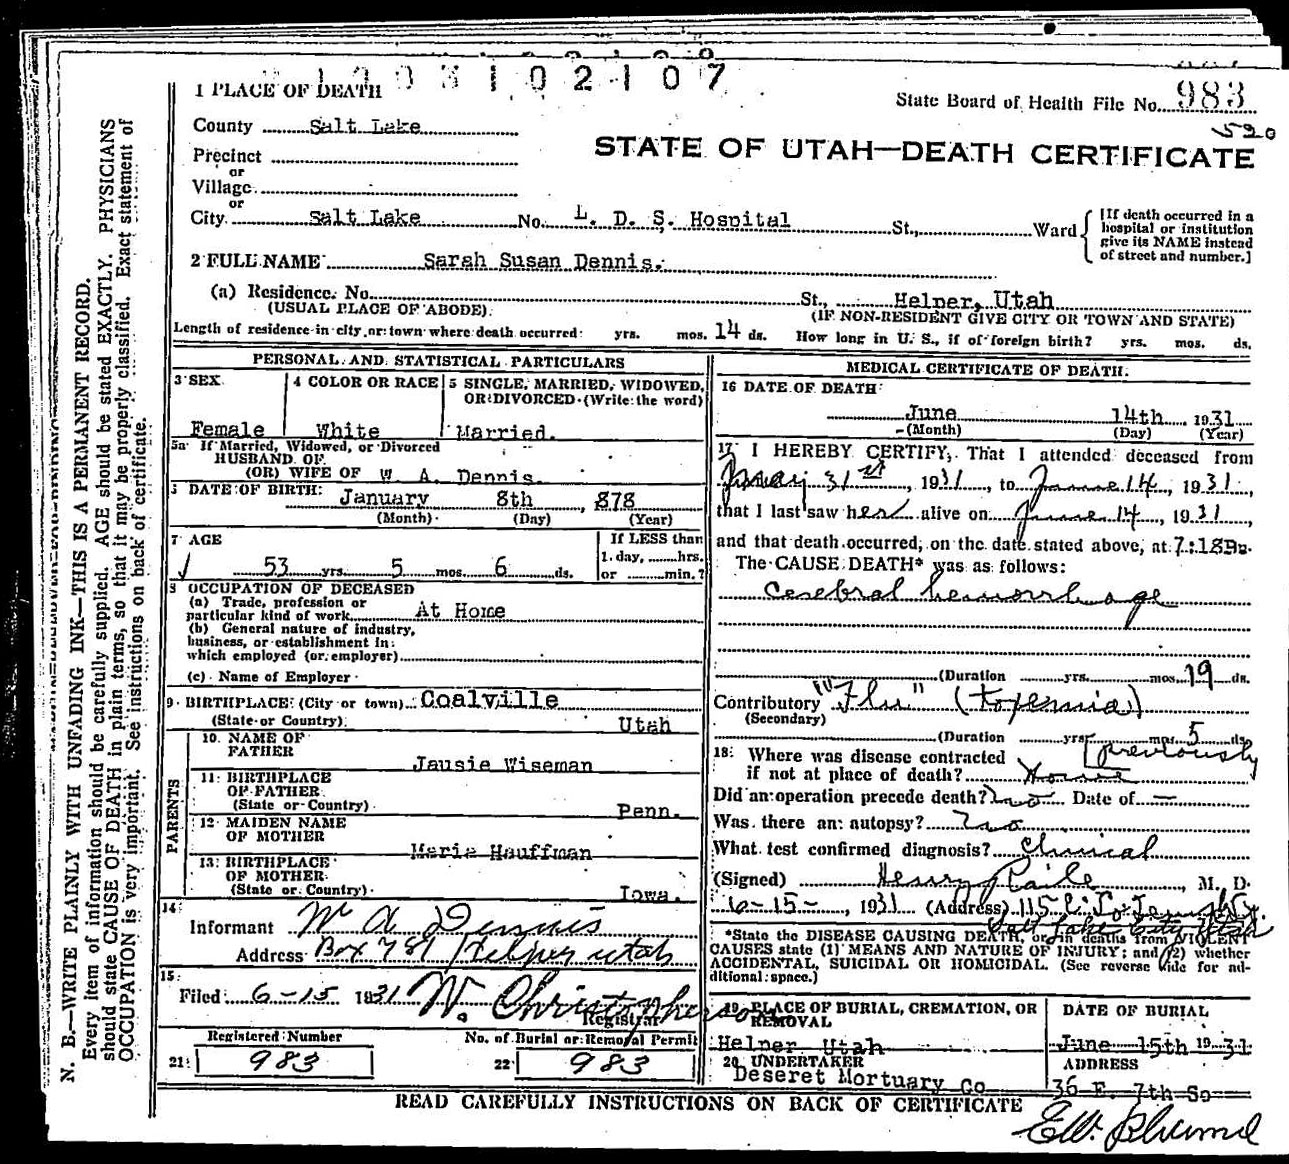 1003102107
1 PLACE OF DEATH
State Board of Health File No. 983
520
County Salt Lake
STATE OF UTAH—DEATH CERTIFICATE
Precinct
or
Village
or
City Salt Lake No. L. D. S. Hospital St., Ward
[If death occurred in a
hospital or institution
give its NAME instead
of street and number.]
2 FULL NAME Sarah Susan Dennis.
(a) Residence. No. St., Helper, Utah
(USUAL PLACE OF ABODE) (IF NON-RESIDENT GIVE CITY OR TOWN AND STATE)
Length of residence in city or town where death occurred: yrs. mos. 14 ds. How long in U. S., if of foreign birth? yrs. mos. ds.
PERSONAL AND STATISTICAL PARTICULARS
3 SEX 4 COLOR OR RACE 5 SINGLE, MARRIED, WIDOWED,
OR DIVORCED (Write the word)
Female White Married.
5a If Married, Widowed, or Divorced
HUSBAND OF
(OR) WIFE OF W. A. Dennis.
DATE OF BIRTH: January 8th, 878
(Month) (Day) (Year)
7 AGE If LESS than
1 day, hrs.
53 yrs. 5 mos. 6 ds. or min.?
8 OCCUPATION OF DECEASED
(a) Trade, profession or
particular kind of work At Home
(b) General nature of industry,
business, or establishment in
which employed (or employer)
(c) Name of Employer
9 BIRTHPLACE (City or town) Coalville
(State or Country) Utah
PARENTS
10. NAME OF
FATHER Jausie Wiseman
11: BIRTHPLACE
OF FATHER
(State or Country) Penn.
12 MAIDEN NAME
OF MOTHER Marie Hauffman
13: BIRTHPLACE
OF MOTHER
(State or Country) Iowa.
14
Informant W A Dennis
Address Box 781 Helper Utah
15
Filed 6-15 1931 W. Christopherson
Registrar
Registered Number No. of Burial or Removal Permit
21: 983 22 983
MEDICAL CERTIFICATE OF DEATH.
16 DATE OF DEATH
June 14th 1931
(Month) (Day) (Year)
17 I HEREBY CERTIFY, That I attended deceased from
May 31st, 1931, to June 14, 1931,
that I last saw her alive on June 14, 1931,
and that death occurred, on the date stated above, at 7:18
The CAUSE DEATH* was as follows:
cerebral hemorrhage
(Duration yrs. mos. 19 ds.
Contributory "Flu" (toxemia)
(Secondary)
(Duration yrs. mos. 5 ds.
previously
18: Where was disease contracted
if not at place of death? Home
Did an operation precede death? no Date of —
Was there an autopsy? no
What test confirmed diagnosis? Clinical
(Signed) Henry Raile, M. D.
6-15-, 1931 (Address) 115 E. So Temple St.
Salt Lake City Utah
*State the DISEASE CAUSING DEATH, or in deaths from VIOLENT
CAUSES state (1) MEANS AND NATURE OF INJURY; and (2) whether
ACCIDENTAL, SUICIDAL OR HOMICIDAL. (See reverse side for ad-
ditional space.)
19 PLACE OF BURIAL, CREMATION, OR
REMOVAL
Helper Utah
DATE OF BURIAL
June 15th 1931
20 UNDERTAKER
Deseret Mortuary Co
ADDRESS
36 E. 7th So
READ CAREFULLY INSTRUCTIONS ON BACK OF CERTIFICATE
N. B.—WRITE PLAINLY WITH UNFADING INK—THIS IS A PERMANENT RECORD.
Every item of information should be carefully supplied. AGE should be stated EXACTLY. PHYSICIANS
should state CAUSE OF DEATH in plain terms, so that it may be properly classified. Exact statement of
OCCUPATION is very important. See instructions on back of certificate.